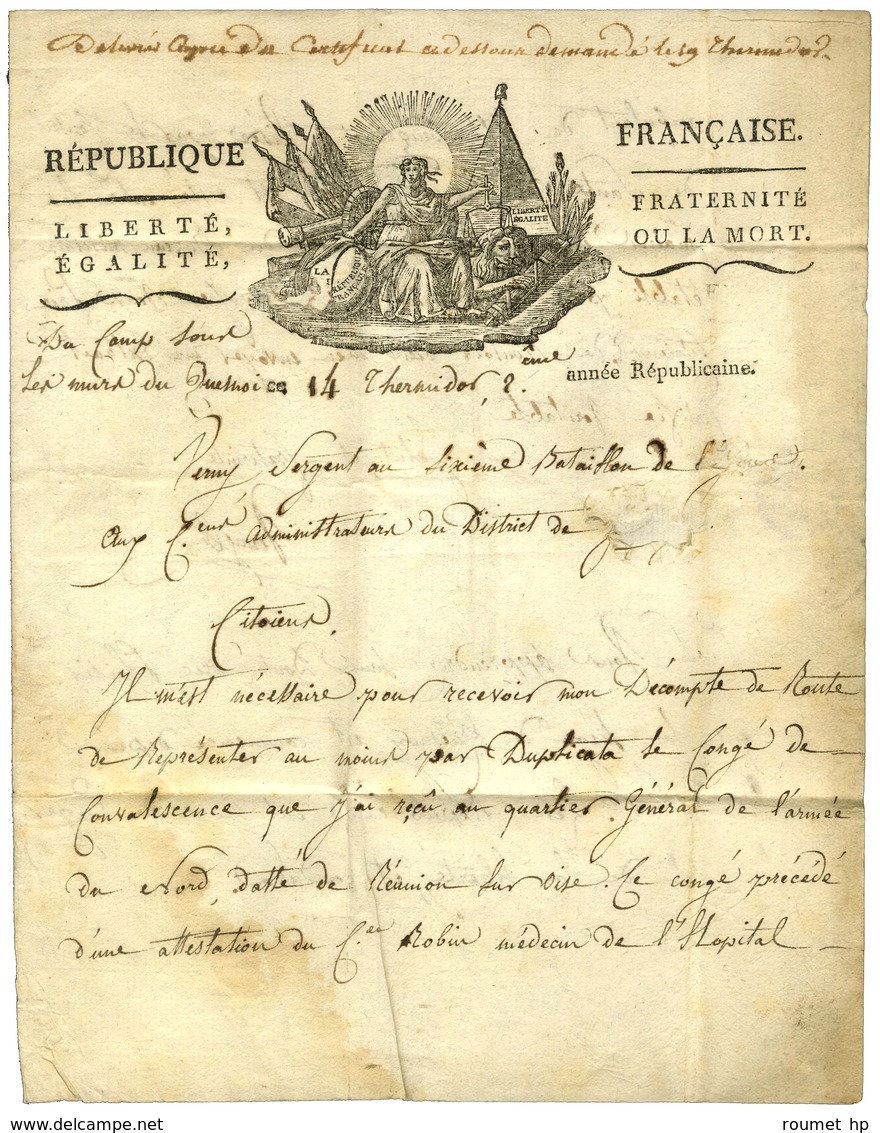 Delivré Copie du Certificat cy dessous demandé le 19 Thermidor.
RÉPUBLIQUE FRANÇAISE.
LIBERTÉ, FRATERNITÉ
ÉGALITÉ, OU LA MORT.
LIBERTÉ
ÉGALITÉ
LA
RÉPUBLIQUE
FRANÇAISE
Du Camp sous
les murs du Quesnoi ce 14 Thermidor, 2.ème année Républicaine.
Sergent au Sixième Bataillon de
Aux C.ens Administrateurs du District de
Citoiens,
Il m'est nécessaire pour recevoir mon Décompte de Route
de Représenter au moins par Duplicata le Congé de
Convalescence que j'ai reçû au quartier Général de l'armée
du Nord, datté de Réunion sur Oise. Ce congé précédé
d'une attestation du C.en Robin médecin de l'Hopital
roumet hp